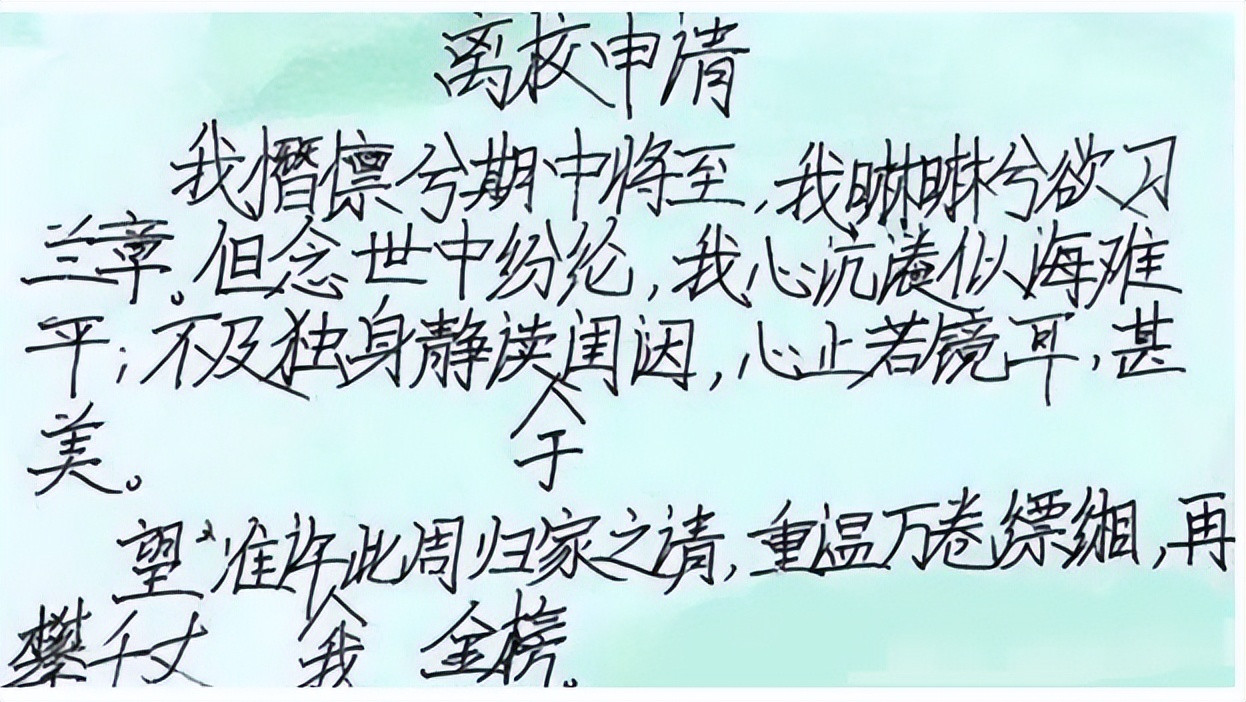 离校申请
我憯懔兮期中将至,我啉啉兮欲习
兰章。但念世中纷纶,我心沉凑似海难
平;不及独身静读于闺闼,心止若镜耳,甚
美。
望准许我此周归家之请,重温万卷缥缃,再
攀千丈金榜。